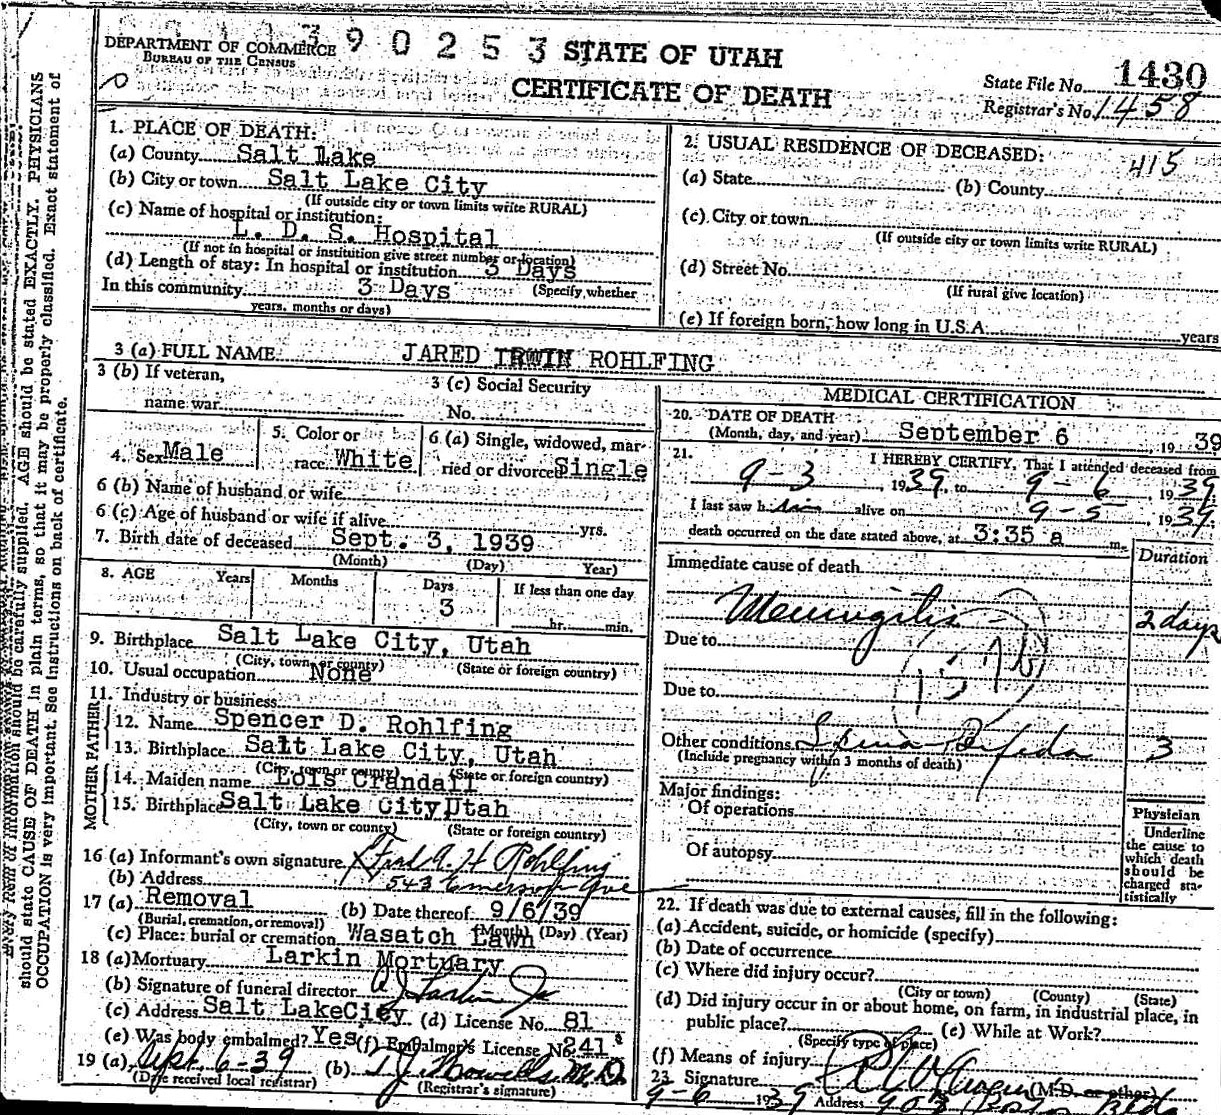 3 9 0 2 5 3
DEPARTMENT OF COMMERCE
BUREAU OF THE CENSUS
STATE OF UTAH
CERTIFICATE OF DEATH
State File No. 1430
Registrar's No. 1458
1. PLACE OF DEATH:
(a) County Salt Lake
(b) City or town Salt Lake City
(If outside city or town limits write RURAL)
(c) Name of hospital or institution:
L. D. S. Hospital
(If not in hospital or institution give street number or location)
(d) Length of stay: In hospital or institution 3 Days
In this community 3 Days (Specify whether
years, months or days)
2. USUAL RESIDENCE OF DECEASED: 415
(a) State (b) County
(c) City or town
(If outside city or town limits write RURAL)
(d) Street No.
(If rural give location)
(e) If foreign born, how long in U.S.A. years
3 (a) FULL NAME JARED IRWIN ROHLFING
3 (b) If veteran,
name war
3 (c) Social Security
No.
4. Sex Male
5. Color or
race White
6 (a) Single, widowed, mar-
ried or divorced Single
6 (b) Name of husband or wife
6 (c) Age of husband or wife if alive yrs.
7. Birth date of deceased Sept. 3, 1939
(Month) (Day) Year)
8. AGE Years Months Days If less than one day
3 hr. min.
9. Birthplace Salt Lake City, Utah
(City, town or county) (State or foreign country)
10. Usual occupation None
11. Industry or business
FATHER
12. Name Spencer D. Rohlfing
13. Birthplace Salt Lake City, Utah
(City, town or county) (State or foreign country)
MOTHER
14. Maiden name Lois Crandall
15. Birthplace Salt Lake City, Utah
(City, town or county) (State or foreign country)
16 (a) Informant's own signature Fred A. H Rohlfing
(b) Address 543 Emerson Ave
17 (a) Removal (b) Date thereof 9/6/39
(Burial, cremation, or removal) (Month) (Day) (Year)
(c) Place: burial or cremation Wasatch Lawn
18 (a) Mortuary Larkin Mortuary
(b) Signature of funeral director A J Larkin Jr
(c) Address Salt Lake City (d) License No. 81
(e) Was body embalmed? Yes (f) Embalmer's License No. 241
19 (a) Sept. 6-39 (b) T J Howells M.D.
(Date received local registrar) (Registrar's signature)
MEDICAL CERTIFICATION
20. DATE OF DEATH
(Month, day, and year) September 6 19 39
21. I HEREBY CERTIFY, That I attended deceased from
9-3, 19 39, to 9-6, 19 39
I last saw him alive on 9-5, 19 39,
death occurred on the date stated above, at 3:35 a m.
Duration
Immediate cause of death
Meningitis 2 days
Due to
Due to
Other conditions Spina Bifida 3
(Include pregnancy within 3 months of death)
Major findings:
Of operations
Of autopsy
Physician
Underline
the cause to
which death
should be
charged sta-
tistically
22. If death was due to external causes, fill in the following:
(a) Accident, suicide, or homicide (specify)
(b) Date of occurrence
(c) Where did injury occur?
(City or town) (County) (State)
(d) Did injury occur in or about home, on farm, in industrial place, in
public place? (e) While at Work?
(Specify type of place)
(f) Means of injury
23. Signature (M.D. or other)
9-6 1939 Address
should state CAUSE OF DEATH in plain terms, so that it may be properly classified. Exact statement of
OCCUPATION is very important. See instructions on back of certificate.
Every item of information should be carefully supplied. AGE should be stated EXACTLY. PHYSICIANS